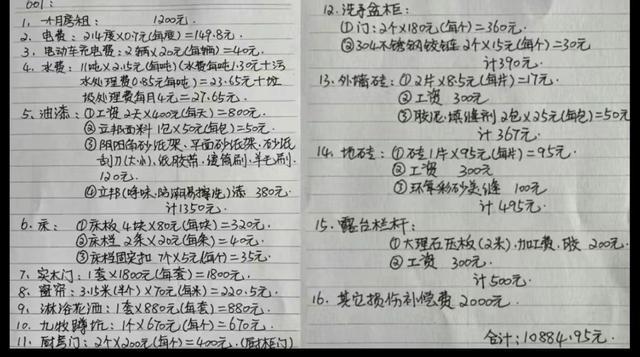 601:
1. 一个月房租: 1200元.
2. 电费: 214度×0.7元(每度)=149.8元.
3. 电动车充电费: 2辆×20元(每辆)=40元.
4. 水费: 11吨×2.15元(每吨)(水费每吨1.30元+污
水处理费0.85元每吨)=23.65元+垃
圾处理费每月4元=27.65元.
5. 油漆: ①工资2天×400元(每天)=800元.
②立邦面料 1包×50元(每包)=50元.
③阴阳角砂纸架、平面砂纸架、砂纸
刮刀(大小)、纸胶带、滚筒刷、羊毛刷.
120元.
④立邦(呼吸、防潮易擦洗)漆 380元.
计1350元.
6. 床: ①床板 4块×80元(每块)=320元.
②床栏 2条×20元(每条)=40元.
③床栏固定扣 7个×5元(每个)=35元.
7. 实木门: 1套×1800元(每套)=1800元.
8. 窗帘: 3.15米(半个)×70元(每米)=220.5元.
9. 淋浴花洒: 1套×880元(每套)=880元.
10. 九牧蹲坑: 1个×670元(每个)=670元.
11. 厨房门: 2个×200元(每个)=400元. (厨柜门)
12. 洗手盆柜:
①门: 2个×180元(每个)=360元.
②304不锈钢铰链 2个×15元(每个)=30元
计390元.
13. 外墙砖: ①2片×8.5元(每片)=17元.
②工资 300元
③胶泥、填缝剂 2包×25元(每包)=50元
计 367元.
14. 地砖: ①砖1片×95元(每片)=95元.
②工资 300元
③环氧彩砂美缝 100元
计 495元.
15. 露台栏杆:
①大理石压板(2米)、加工费、胶 200元.
②工资 300元.
计500元.
16. 其它损伤补偿费2000元.
合计: 10884.95元.